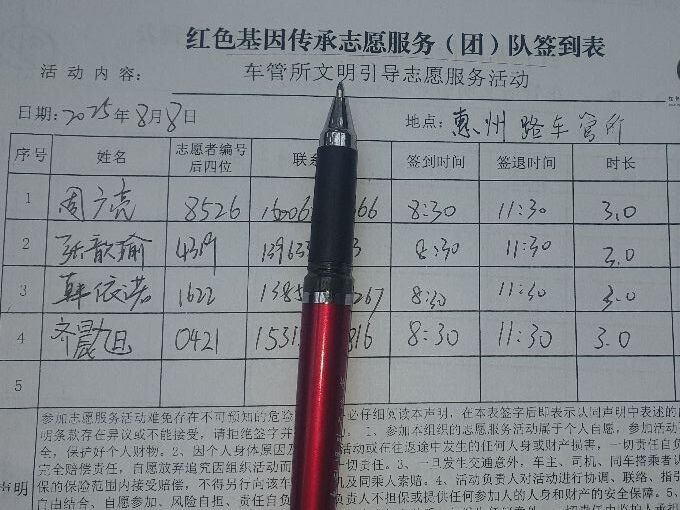 红色基因传承志愿服务（团）队签到表
活动内容： 车管所文明引导志愿服务活动
日期：2025年8月8日 地点：惠州路车管所
序号 姓名 志愿者编号后四位 联系 签到时间 签退时间 时长
1 周广亮 8526 66 8:30 11:30 3.0
2 张歆瑜 139633 3 8:30 11:30 3.0
3 韩依诺 1622 1385 267 8:30 11:30 3.0
4 齐勖旭 0421 1531 316 8:30 11:30 3.0
5
参加志愿服务活动难免存在不可预知的危险 必仔细阅读本声明，在本表签字后即表示认同声明中表述的
明条款存在异议或不能接受，请拒绝签字并 1、参加本组织的志愿服务活动属于个人自愿，参加活动
全，保护好个人财物。2、因个人身体原因及 活动或在往返途中发生的任何人身或财产损害，一切责任自负
完全赔偿责任，自愿放弃追究因组织活动而 一切责任。3、一旦发生交通意外，车主、司机、同车搭乘者
保的保险范围内接受赔偿，不得另行向该车 机及同乘人索赔。4、活动负责人对活动进行协调、联络、指
声明 自由结合、自愿参加、风险自担、责任自负 负责人不担保或提供任何参加人的人身和财产的安全保障。5